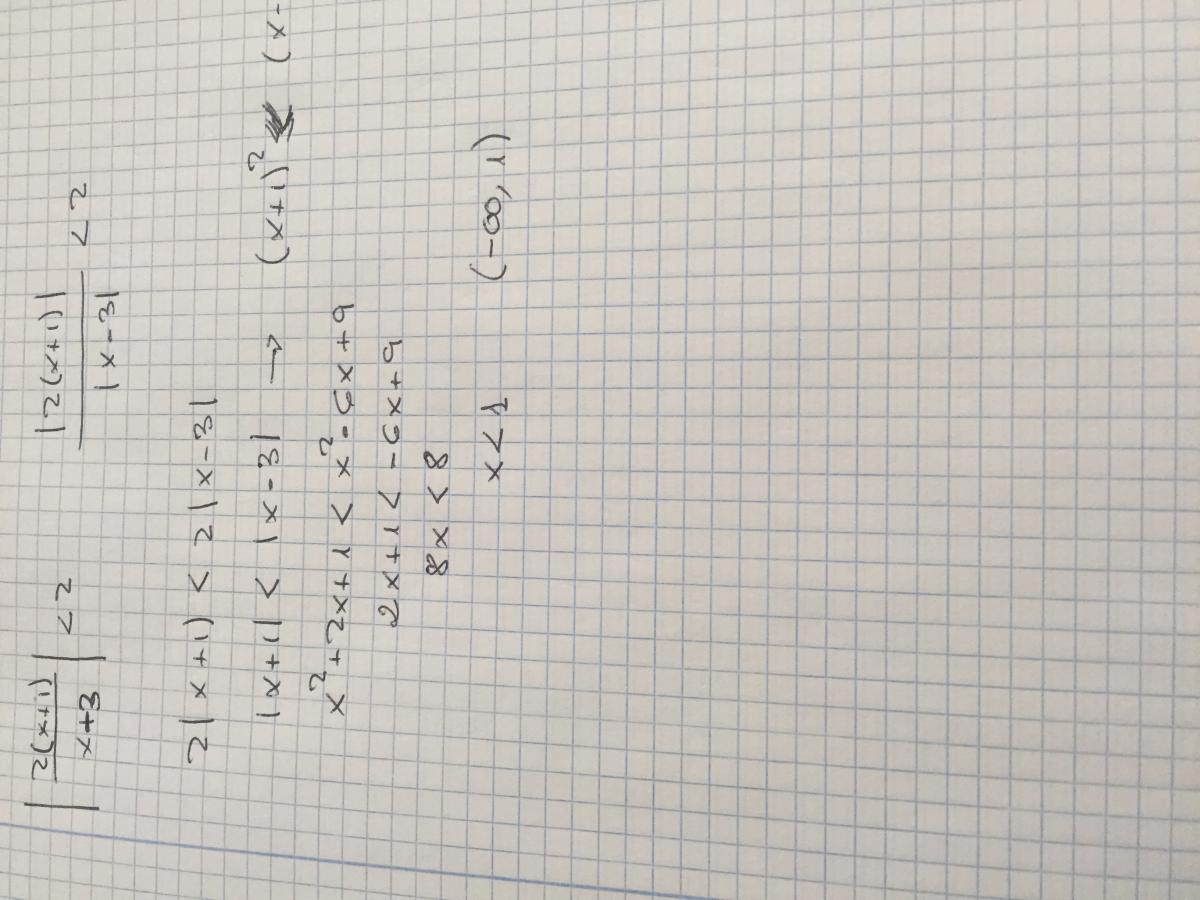 |2(x+1)/x+3| < 2 |2(x+1)|/|x-3| < 2
2|x+1) < 2|x-3|
|x+1| < |x-3| → (x+1)² < (x-
x²+2x+1 < x²-6x+9
2x+1 < -6x+9
8x < 8
x < 1 (-∞, 1)